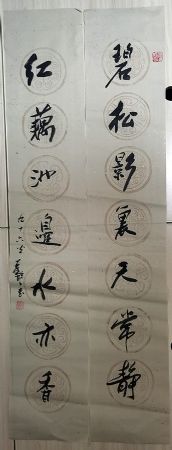 碧松影裏天常静
红藕池邊水亦香
九十六